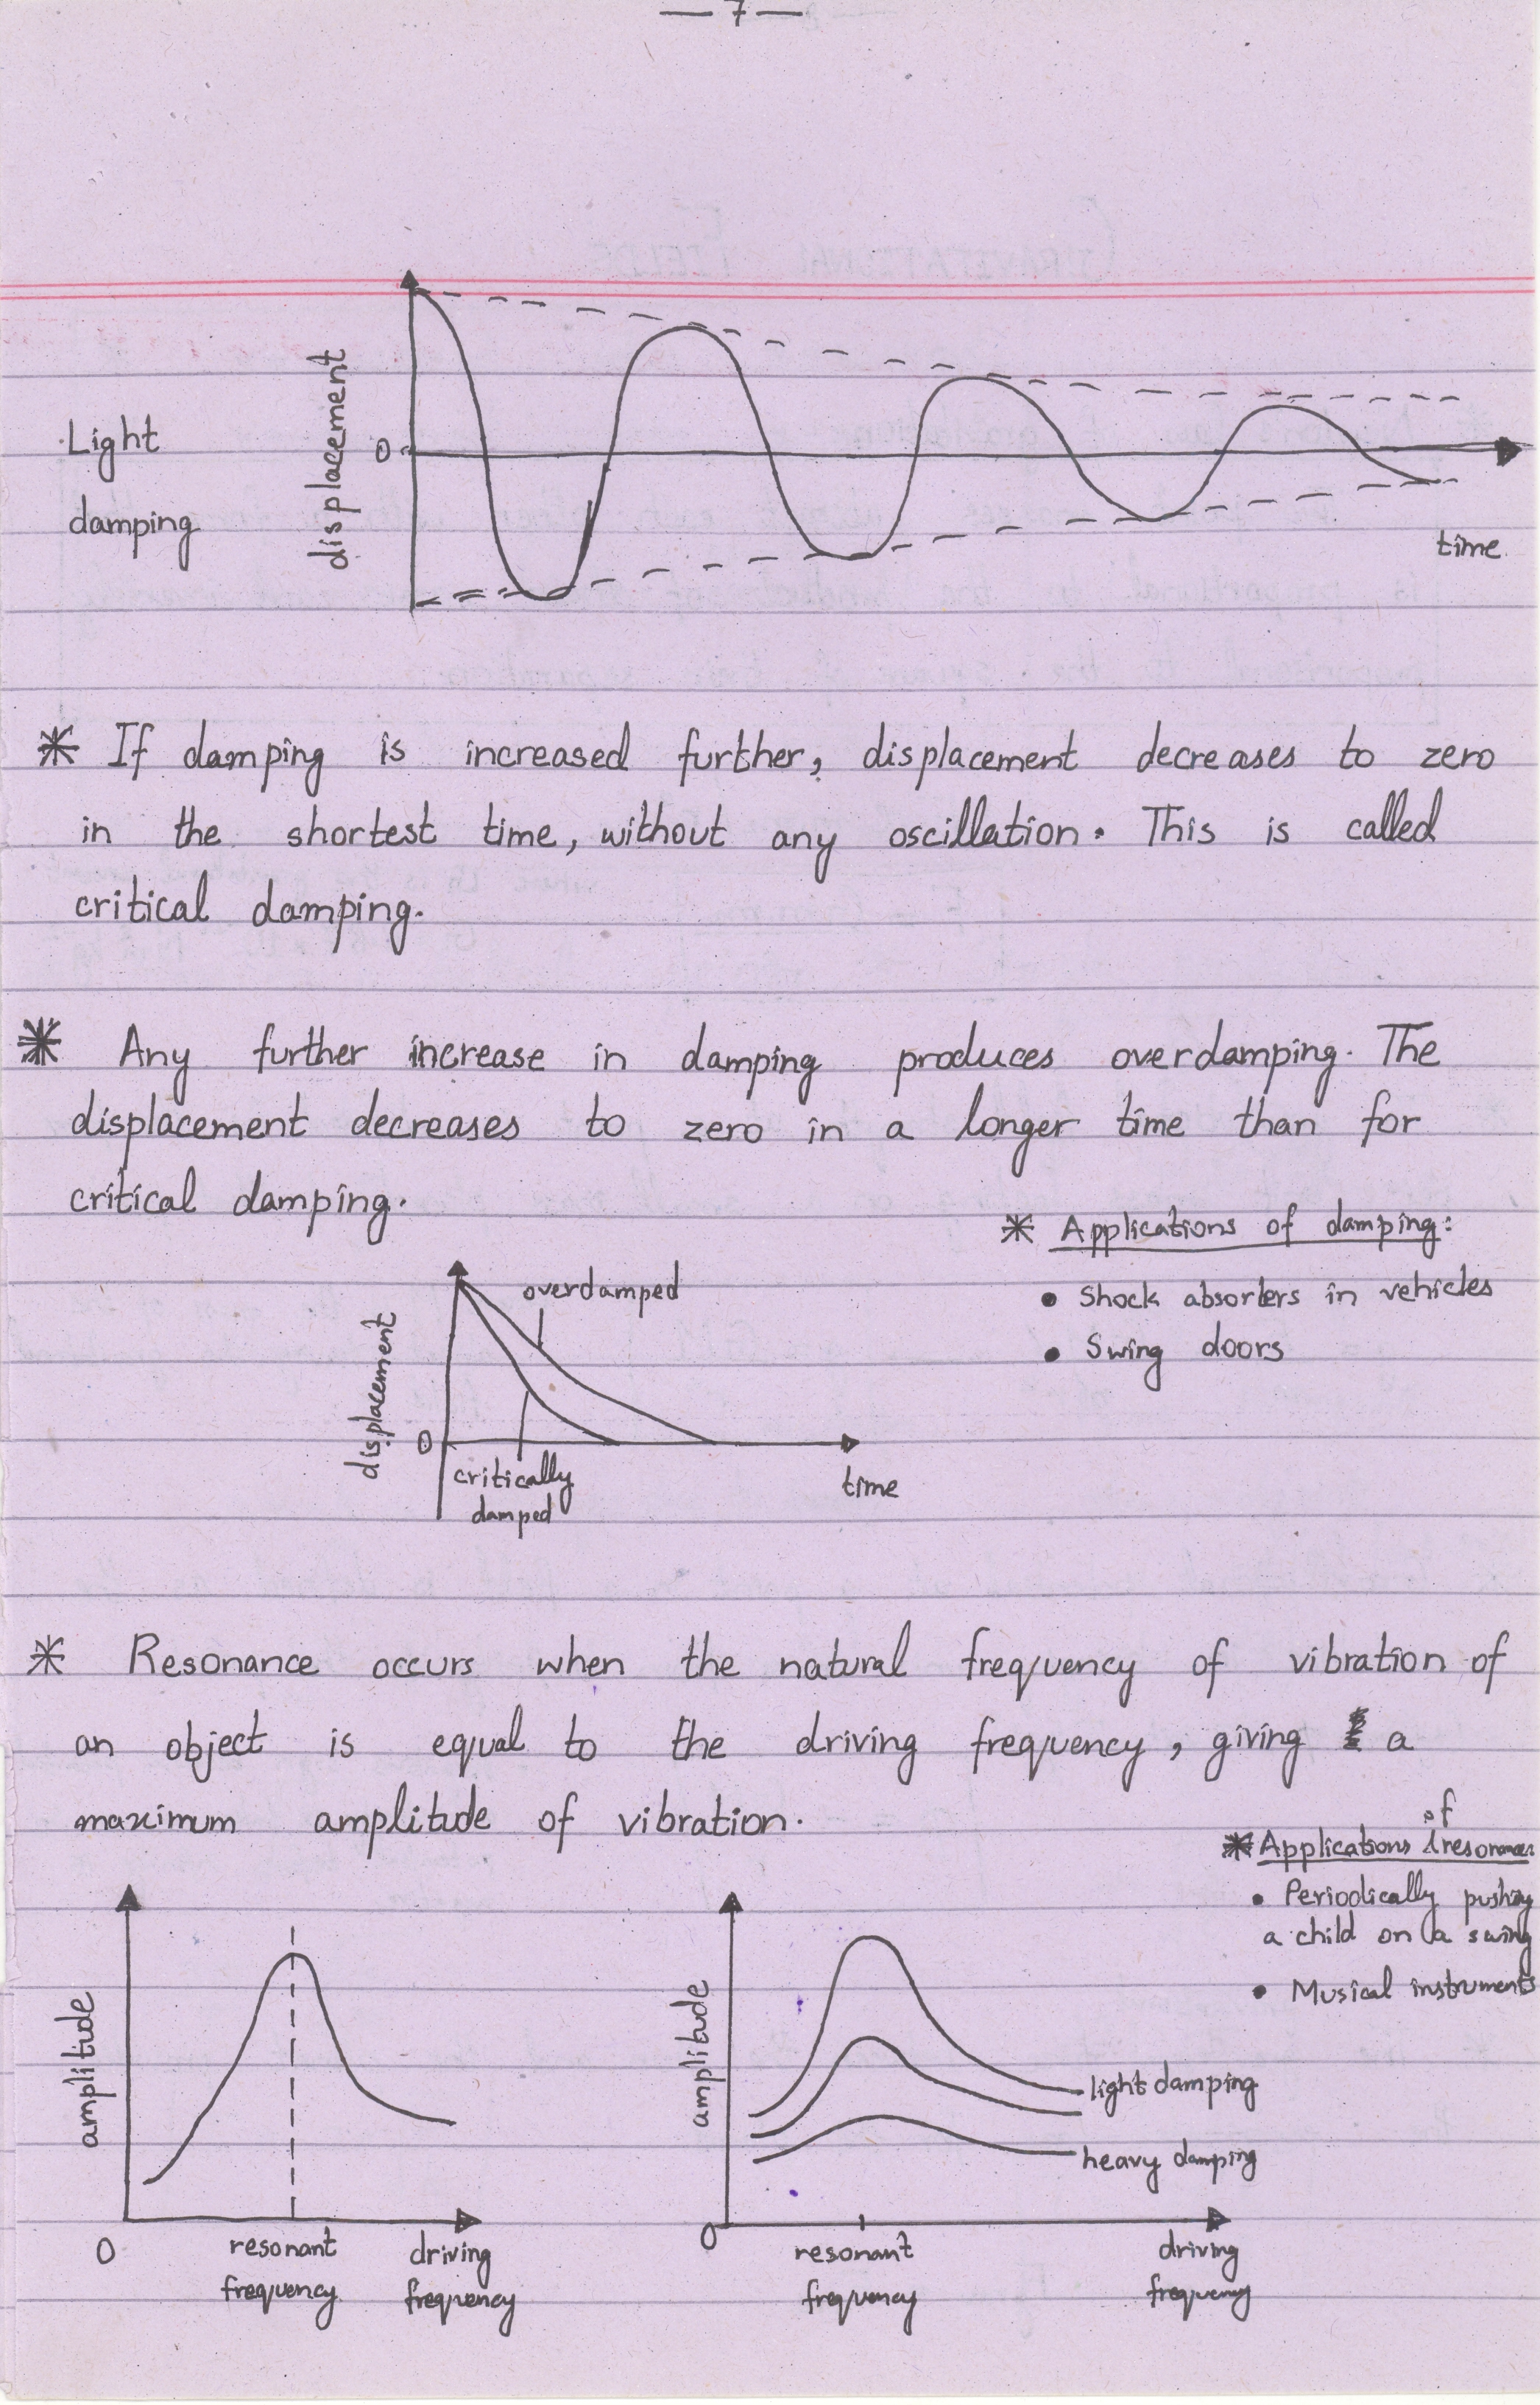 — 7 —
displacement
Light
damping
0
time
* If damping is increased further, displacement decreases to zero
in the shortest time, without any oscillation. This is called
critical damping.
* Any further increase in damping produces overdamping. The
displacement decreases to zero in a longer time than for
critical damping.
* Applications of damping:
• Shock absorbers in vehicles
• Swing doors
overdamped
displacement
0
critically
damped
time
* Resonance occurs when the natural frequency of vibration of
an object is equal to the driving frequency, giving a
maximum amplitude of vibration.
* Applications of resonance
• Periodically pushing
a child on a swing
• Musical instruments
amplitude
0
resonant
frequency
driving
frequency
amplitude
light damping
heavy damping
0
resonant
frequency
driving
frequency